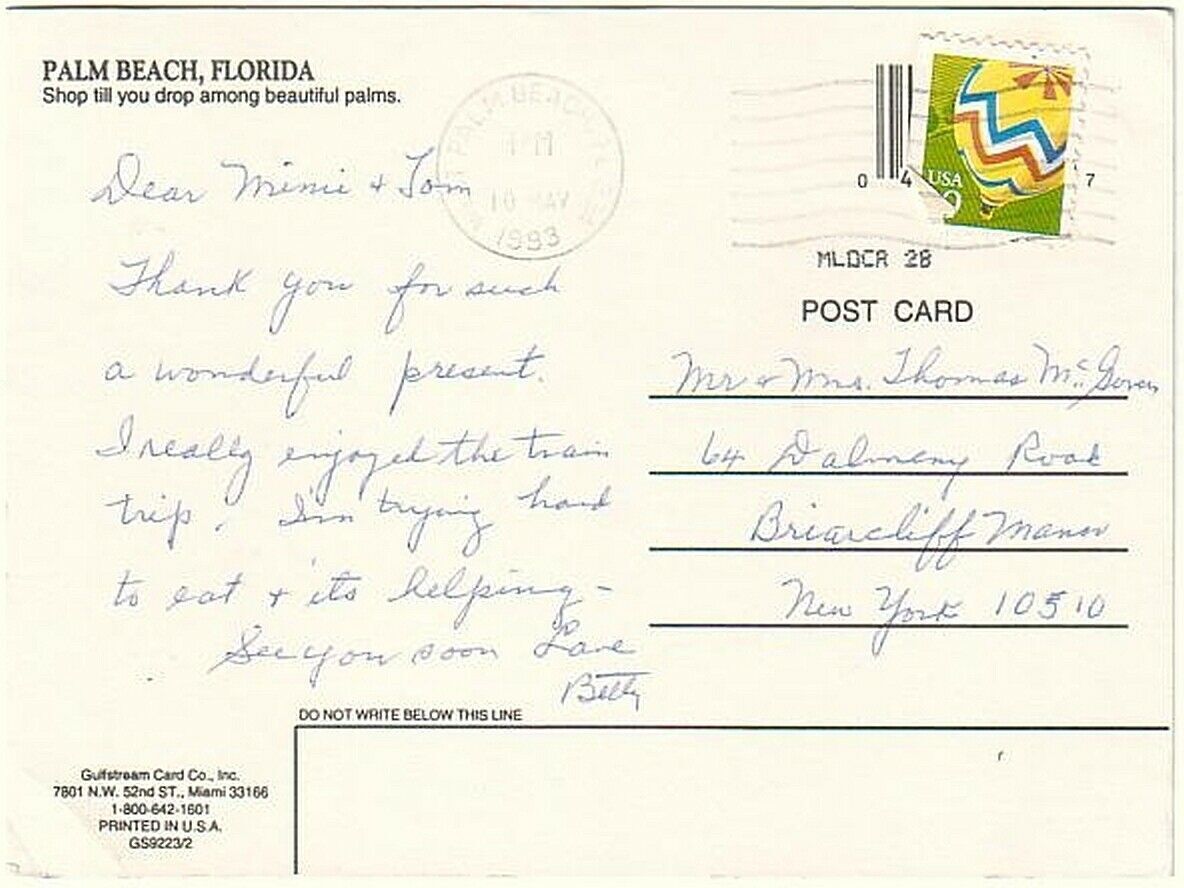 PALM BEACH, FLORIDA
Shop till you drop among beautiful palms.
PM
10 MAY
1993
USA
0 4 7
MLOCR 28
POST CARD
Dear Mimi & Tom
Thank you for such
a wonderful present.
I really enjoyed the train
trip. I'm trying hard
to eat & its helping –
See you soon Love
Betty
Mr & Mrs. Thomas McGovern
64 Dalmeny Road
Briarcliff Manor
New York 10510
DO NOT WRITE BELOW THIS LINE
Gulfstream Card Co., Inc.
7801 N.W. 52nd ST., Miami 33166
1-800-642-1601
PRINTED IN U.S.A.
GS9223/2